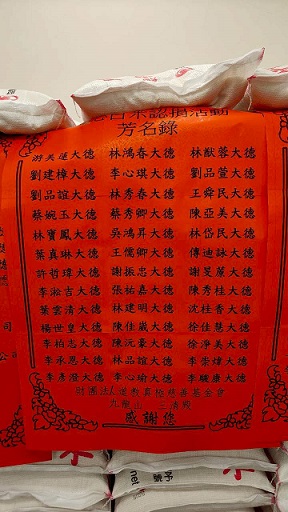 白米認捐活動
芳名錄
游美蓮大德 林鴻春大德 林猷蓉大德
劉建樟大德 李心琪大德 劉品萱大德
劉品誼大德 林秀春大德 王舜民大德
蔡婉玉大德 蔡秀卿大德 陳亞美大德
林寶鳳大德 吳鴻昇大德 林岱民大德
葉真琳大德 王儒卿大德 傅迪詠大德
許哲瑋大德 謝振忠大德 謝旻麗大德
李淞吉大德 張祐嘉大德 陳秀桂大德
葉雲清大德 林建明大德 沈桂香大德
楊世皇大德 陳仕崴大德 徐佳慧大德
李柏志大德 陳沅豪大德 徐淨美大德
李承恩大德 林品誼大德 李崇煒大德
李彥澄大德 李心瑜大德 李駿康大德
財團法人道教真陵慈善基金會
感謝您
司